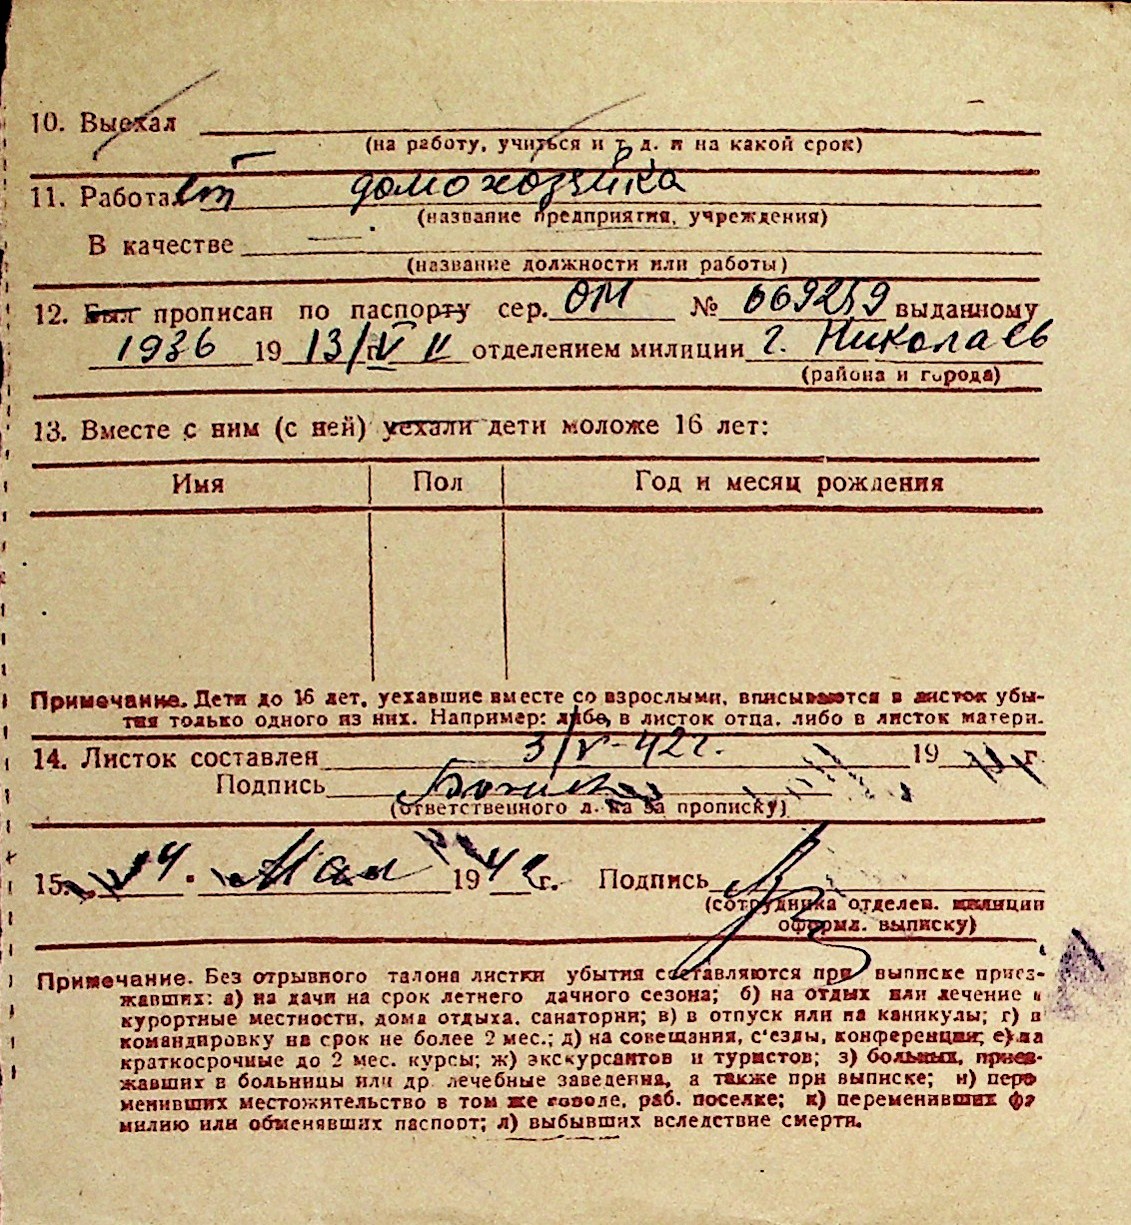 10. Выехал
(на работу, учиться и т. д. и на какой срок)
11. Работает домохозяйка
(название предприятия, учреждения)
В качестве —
(название должности или работы)
12. Был прописан по паспорту сер. ОМ № 669259 выданному
1936 19 13/IV II отделением милиции г. Николаев
(района и города)
13. Вместе с ним (с ней) уехали дети моложе 16 лет:
Имя Пол Год и месяц рождения
Примечание. Дети до 16 лет, уехавшие вместе со взрослыми, вписываются в листок убы-
тия только одного из них. Например: либо, в листок отца, либо в листок матери.
14. Листок составлен 3/V-42г. 19 г.
Подпись
(ответственного л-ка за прописку)
15. 4 Мая 1942 г. Подпись
(сотрудника отделен. милиции
оформл. выписку)
Примечание. Без отрывного талона листки убытия составляются при выписке приез-
жавших: а) на дачи на срок летнего дачного сезона; б) на отдых или лечение в
курортные местности, дома отдыха, санатории; в) в отпуск или на каникулы; г) в
командировку на срок не более 2 мес.; д) на совещания, с'езды, конференции; е) на
краткосрочные до 2 мес. курсы; ж) экскурсантов и туристов; з) больных, приез-
жавших в больницы или др. лечебные заведения, а также при выписке; и) пере
менивших местожительство в том же городе, раб. поселке; к) переменивших фа
милию или обменявших паспорт; л) выбывших вследствие смерти.